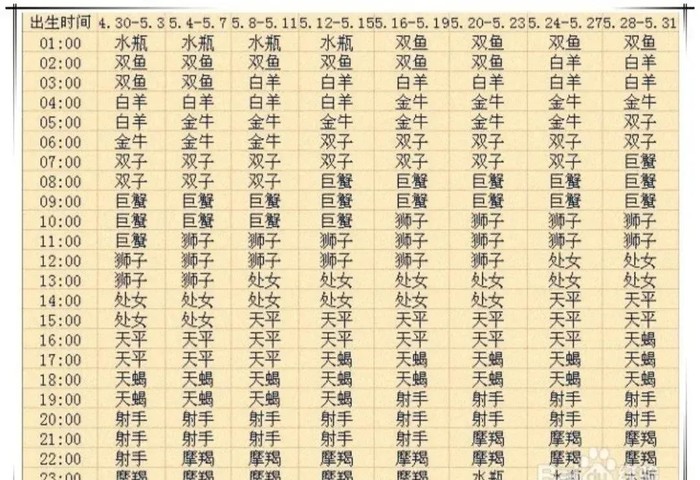 出生时间 4.30-5.3 5.4-5.7 5.8-5.11 5.12-5.15 5.16-5.19 5.20-5.23 5.24-5.27 5.28-5.31
01:00 水瓶 水瓶 水瓶 水瓶 双鱼 双鱼 双鱼 双鱼
02:00 双鱼 双鱼 双鱼 双鱼 双鱼 双鱼 白羊 白羊
03:00 双鱼 双鱼 白羊 白羊 白羊 白羊 白羊 白羊
04:00 白羊 白羊 白羊 白羊 金牛 金牛 金牛 金牛
05:00 白羊 金牛 金牛 金牛 金牛 金牛 金牛 双子
06:00 金牛 金牛 金牛 双子 双子 双子 双子 双子
07:00 双子 双子 双子 双子 双子 双子 双子 巨蟹
08:00 双子 双子 双子 巨蟹 巨蟹 巨蟹 巨蟹 巨蟹
09:00 巨蟹 巨蟹 巨蟹 巨蟹 巨蟹 巨蟹 巨蟹 巨蟹
10:00 巨蟹 巨蟹 巨蟹 巨蟹 狮子 狮子 狮子 狮子
11:00 巨蟹 狮子 狮子 狮子 狮子 狮子 狮子 狮子
12:00 狮子 狮子 狮子 狮子 狮子 狮子 处女 处女
13:00 狮子 狮子 处女 处女 处女 处女 处女 处女
14:00 处女 处女 处女 处女 处女 处女 天平 天平
15:00 处女 处女 天平 天平 天平 天平 天平 天平
16:00 天平 天平 天平 天平 天平 天平 天平 天蝎
17:00 天平 天平 天平 天蝎 天蝎 天蝎 天蝎 天蝎
18:00 天蝎 天蝎 天蝎 天蝎 天蝎 天蝎 天蝎 天蝎
19:00 天蝎 天蝎 天蝎 天蝎 射手 射手 射手 射手
20:00 射手 射手 射手 射手 射手 射手 射手 射手
21:00 射手 射手 射手 射手 射手 摩羯 摩羯 摩羯
22:00 射手 摩羯 摩羯 摩羯 摩羯 摩羯 摩羯 摩羯
23:00 摩羯 摩羯 摩羯 摩羯 摩羯 水瓶